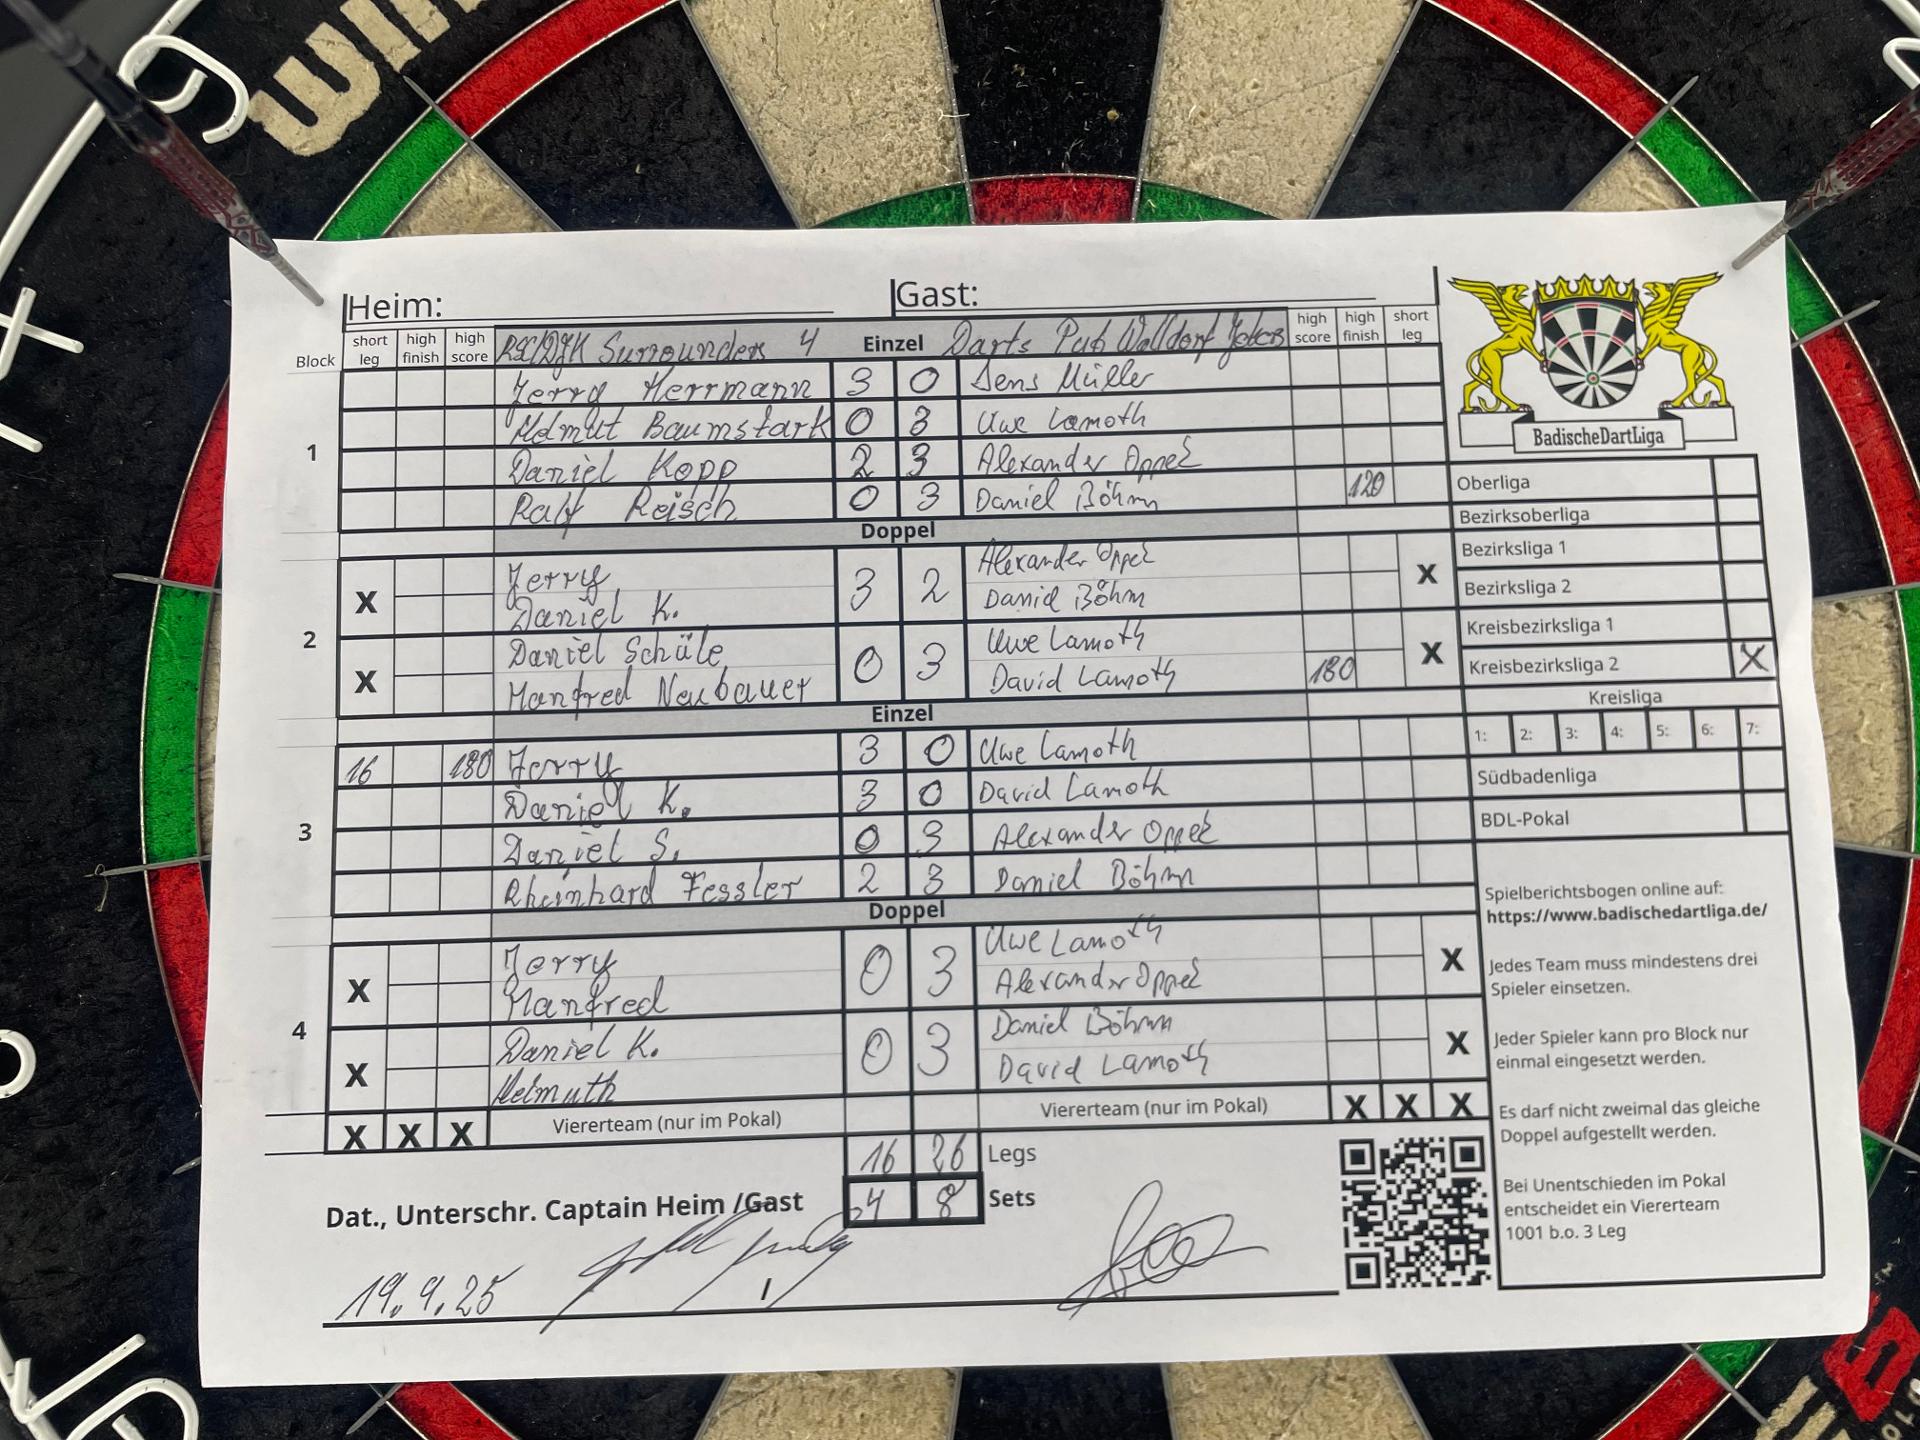 Heim: Gast:
Block short leg high finish high score RSC/DJK Surrounders 4 Einzel Darts Pub Walldorf Jokers high score high finish short leg
1
Jerry Herrmann 3 0 Jens Müller
Helmut Baumstark 0 3 Uwe Lamoth
Daniel Kopp 2 3 Alexander Oppel
Ralf Reisch 0 3 Daniel Böhm 120
Doppel
2
X Jerry 3 2 Alexander Oppel X
Daniel K. Daniel Böhm
X Daniel Schüle 0 3 Uwe Lamoth X
Manfred Neubauer David Lamoth 180
Einzel
3
16 180 Jerry 3 0 Uwe Lamoth
Daniel K. 3 0 David Lamoth
Daniel S. 0 3 Alexander Oppel
Rheinhard Fessler 2 3 Daniel Böhm
Doppel
4
X Jerry 0 3 Uwe Lamoth X
Manfred Alexander Oppel
X Daniel K. 0 3 Daniel Böhm X
Helmuth David Lamoth
X X X Viererteam (nur im Pokal) Viererteam (nur im Pokal) X X X
16 26 Legs
4 8 Sets
Dat., Unterschr. Captain Heim /Gast
19.9.25 /
BadischeDartLiga
Oberliga
Bezirksoberliga
Bezirksliga 1
Bezirksliga 2
Kreisbezirksliga 1
Kreisbezirksliga 2 X
Kreisliga
1: 2: 3: 4: 5: 6: 7:
Südbadenliga
BDL-Pokal
Spielberichtsbogen online auf:
https://www.badischedartliga.de/
Jedes Team muss mindestens drei
Spieler einsetzen.
Jeder Spieler kann pro Block nur
einmal eingesetzt werden.
Es darf nicht zweimal das gleiche
Doppel aufgestellt werden.
Bei Unentschieden im Pokal
entscheidet ein Viererteam
1001 b.o. 3 Leg